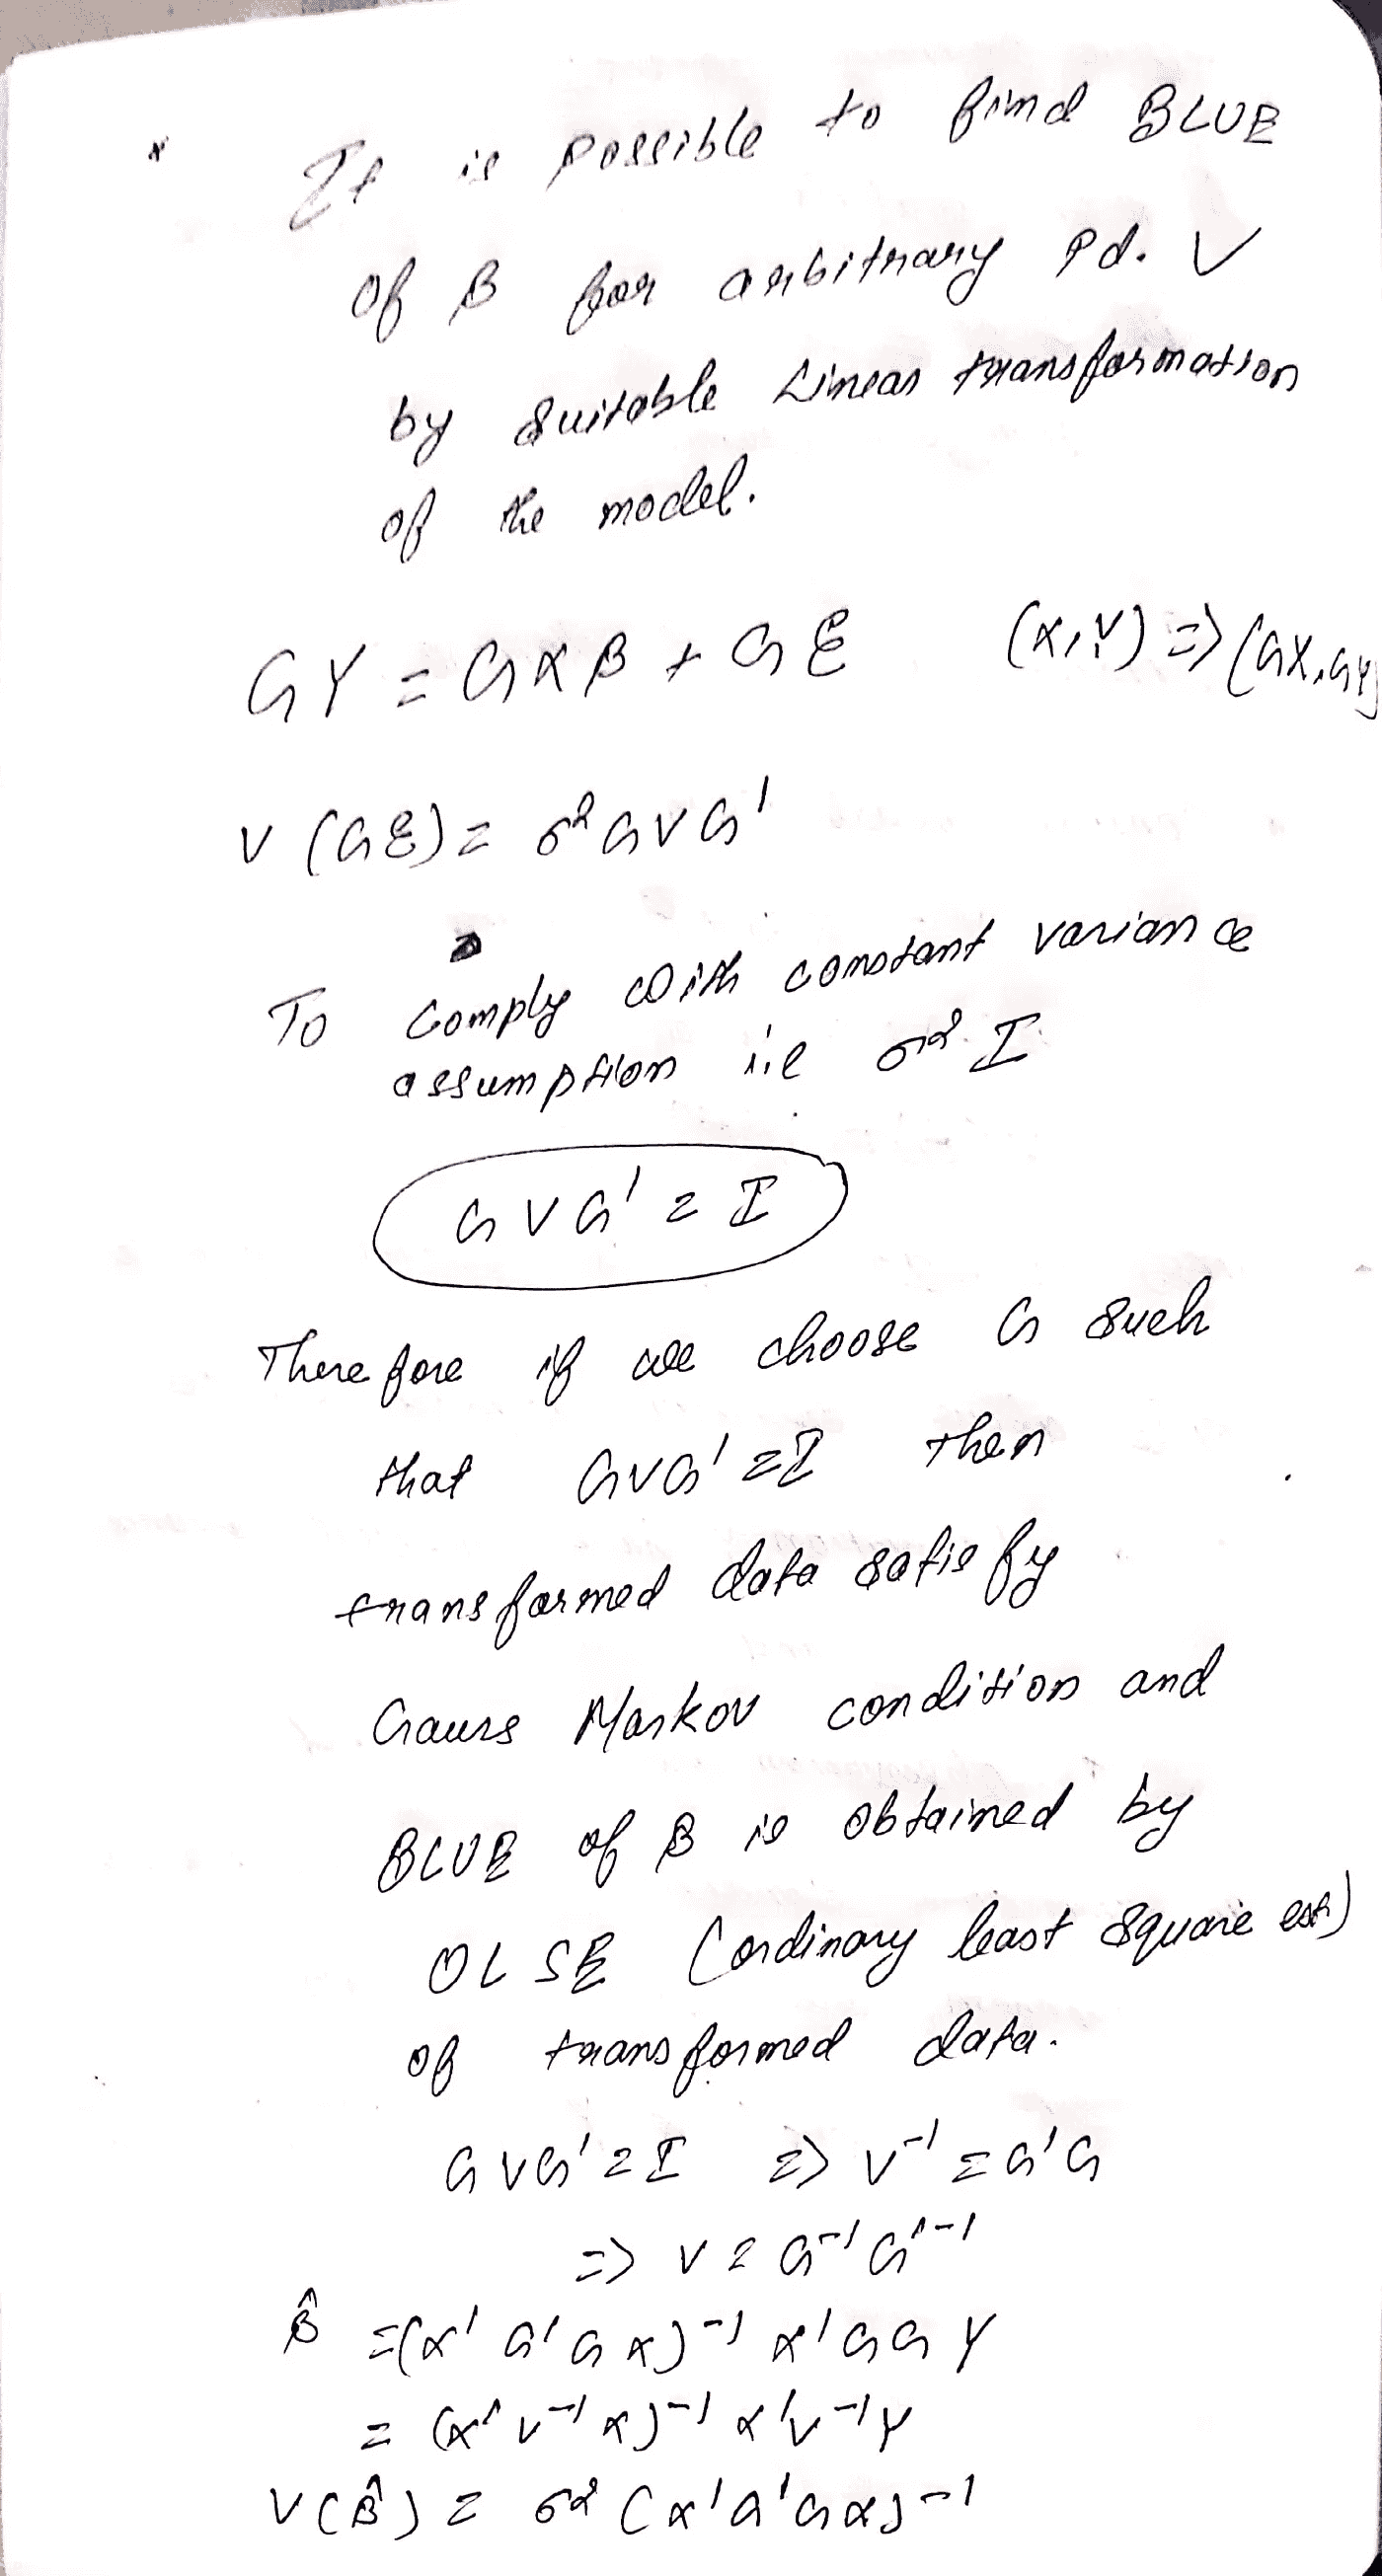 * It is possible to find BLUE
of β for arbitrary Pd. V
by suitable linear transformation
of the model.
GY = GXβ + Gε (X,Y) => (GX,GY)
V(Gε) = σ²GVG'
To comply with constant variance
assumption i.e σ² I
GVG' = I
Therefore if we choose G such
that GVG' = I then
transformed data satisfy
Gauss Markov condition and
BLUE of β is obtained by
OLSE (ordinary least square est)
of transformed data.
GVG' = I => V⁻¹ = G'G
=> V = G⁻¹G'⁻¹
β̂ = (X'G'GX)⁻¹ X'GGY
= (X'V⁻¹X)⁻¹ X'V⁻¹Y
V(β̂) = σ² (X'G'GX)⁻¹